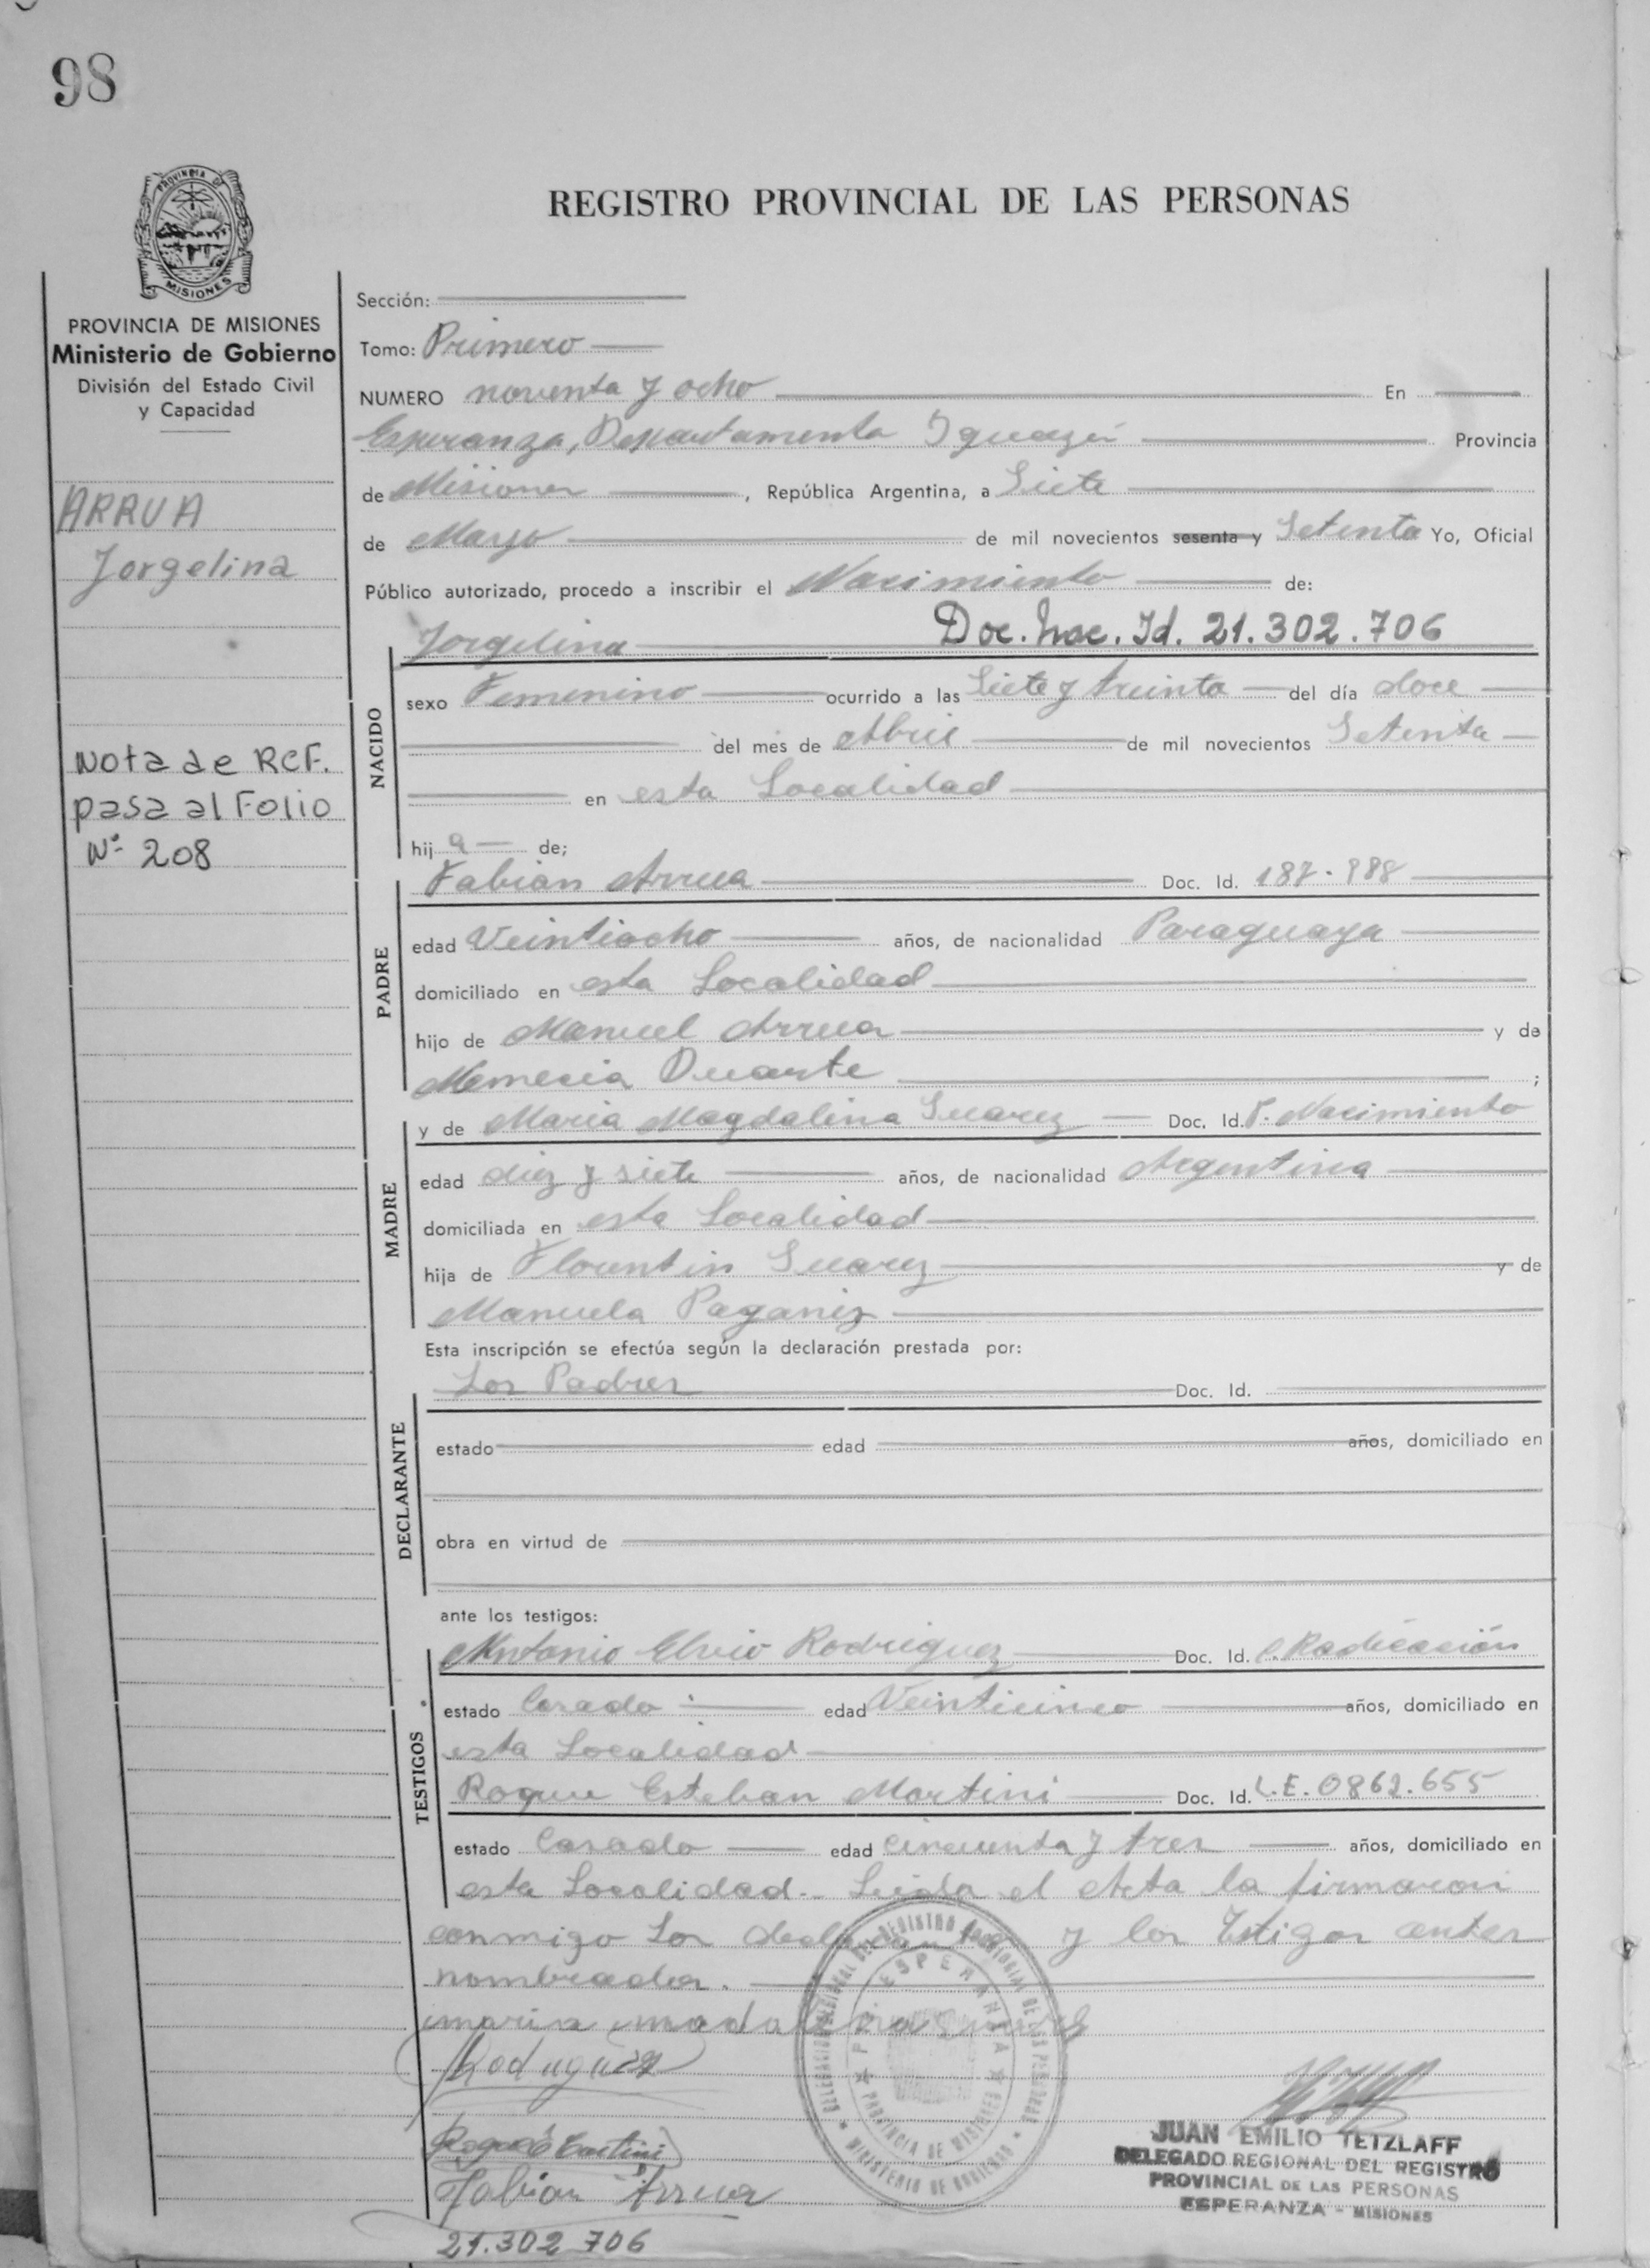 98
REGISTRO PROVINCIAL DE LAS PERSONAS
PROVINCIA DE
MISIONES
PROVINCIA DE MISIONES
Ministerio de Gobierno
División del Estado Civil
y Capacidad
ARRUA
Jorgelina
Nota de RCF.
pasa al Folio
Nº 208
Sección:
Tomo: Primero
NUMERO noventa y ocho En
Esperanza, Departamento Iguazú Provincia
de Misiones, República Argentina, a Siete
de Mayo de mil novecientos sesenta y Setenta Yo, Oficial
Público autorizado, procedo a inscribir el Nacimiento de:
Jorgelina Doc. Nac. Id. 21.302.706
NACIDO
sexo Femenino ocurrido a las Siete y treinta del día doce
del mes de Abril de mil novecientos Setenta
en esta Localidad
hij a de;
PADRE
Fabian Arrua Doc. Id. 187.988
edad Veintiocho años, de nacionalidad Paraguaya
domiciliado en esta Localidad
hijo de Manuel Arrua y de
Nemecia Duarte ;
MADRE
y de Maria Magdalina Suarez Doc. Id. P. Nacimiento
edad diez y siete años, de nacionalidad Argentina
domiciliada en esta Localidad
hija de Florentin Suarez y de
Manuela Paganiz
Esta inscripción se efectúa según la declaración prestada por:
DECLARANTE
Los Padres Doc. Id.
estado edad años, domiciliado en
obra en virtud de
ante los testigos:
TESTIGOS
Antonio Elvio Rodriguez Doc. Id. C. Radicación
estado Casado edad Veinticinco años, domiciliado en
esta Localidad
Roque Esteban Martini Doc. Id. L.E. 0862.655
estado Casado edad cincuenta y tres años, domiciliado en
esta Localidad. Leida el Acta la firmaron
conmigo Los declarantes y los Testigos antes
nombrados.
maria madalena
Rodriguez
Fabian Arrua
21.302.706
ESPERANZA
PROVINCIA DE MISIONES
MINISTERIO DE GOBIERNO
JUAN EMILIO TETZLAFF
DELEGADO REGIONAL DEL REGISTRO
PROVINCIAL DE LAS PERSONAS
ESPERANZA - MISIONES